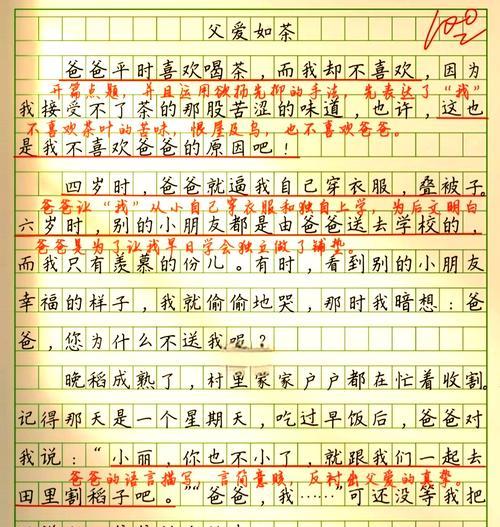 父爱如茶
100
爸爸平时喜欢喝茶，而我却不喜欢，因为
开篇点题，并且运用欲扬先抑的手法，先表达了“我”
我接受不了茶的那股苦涩的味道，也许，这也
不喜欢茶叶的苦味，恨屋及乌，也不喜欢爸爸。
是我不喜欢爸爸的原因吧！
四岁时，爸爸就逼我自己穿衣服，叠被子。
爸爸让“我”从小自己穿衣服和独自上学，为后文明白
六岁时，别的小朋友都是由爸爸送去学校的，
爸爸是为了让我早日学会独立做了铺垫。
而我只有羡慕的份儿。有时，看到别的小朋友
幸福的样子，我就偷偷地哭，那时我暗想：爸
爸，您为什么不送我呢？
晚稻成熟了，村里家家户户都在忙着收割。
记得那天是一个星期天，吃过早饭后，爸爸对
我说：“小丽，你也不小了，就跟我们一起去
爸爸的语言描写，言简意赅，反衬出父爱的真挚。
田里割稻子吧。”“爸爸，我……”可还没等我把